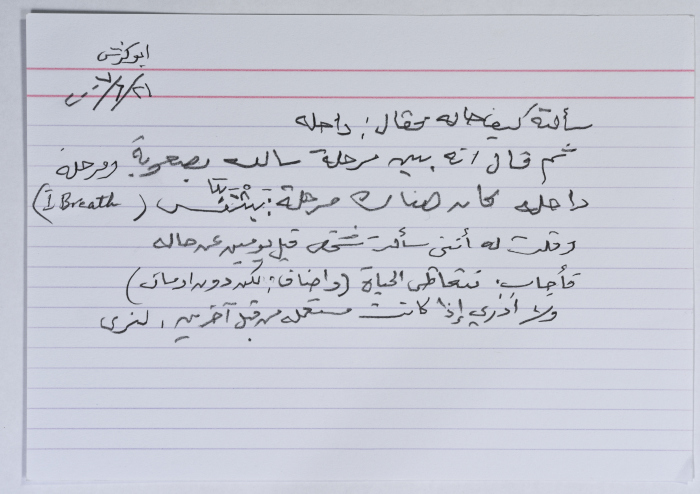 ابو كرش
٢١/٦/
سألته كيف حاله فقال: داحله
ثم قال انه بين مرحلة سالك بصعوبة ومرحلة
داحله كان هناك مرحلة: بتتنفس (I Breath)
وقلت له أنني سألت شخص قبل يومين عن حاله
فأجاب: نتعاطى الحياة (واضاف: لكن دون ادمان)
ولا أدري إذا كانت مستعمله من قبل آخرين، لنرى